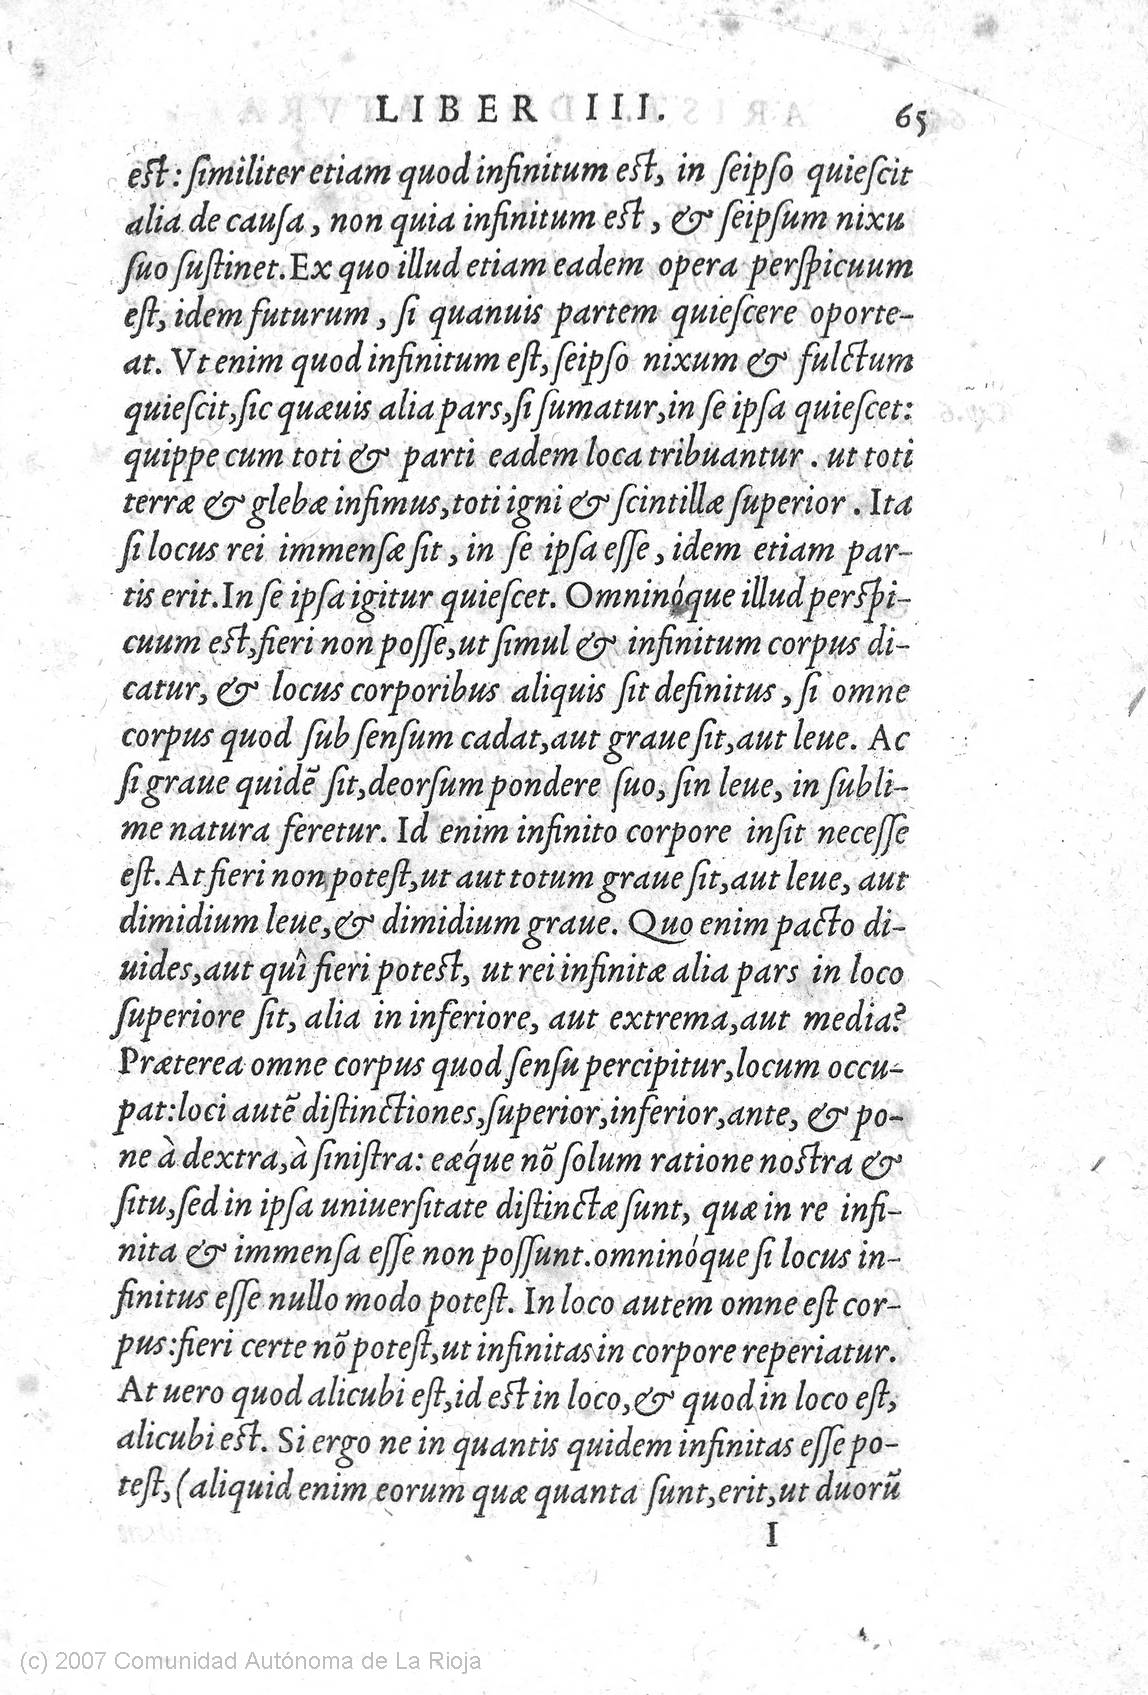 LIBER III. 65
est: similiter etiam quod infinitum est, in seipso quiescit
alia de causa, non quia infinitum est, & seipsum nixu
suo sustinet. Ex quo illud etiam eadem opera perspicuum
est, idem futurum, si quanuis partem quiescere oporte-
at. Vt enim quod infinitum est, seipso nixum & fulctum
quiescit, sic quæuis alia pars, si sumatur, in se ipsa quiescet:
quippe cum toti & parti eadem loca tribuantur. ut toti
terræ & glebæ infimus, toti igni & scintillæ superior. Ita
si locus rei immensæ sit, in se ipsa esse, idem etiam par-
tis erit. In se ipsa igitur quiescet. Omninóque illud perspi-
cuum est, fieri non posse, ut simul & infinitum corpus di-
catur, & locus corporibus aliquis sit definitus, si omne
corpus quod sub sensum cadat, aut graue sit, aut leue. Ac
si graue quidē sit, deorsum pondere suo, sin leue, in subli-
me natura feretur. Id enim infinito corpore insit necesse
est. At fieri non potest, ut aut totum graue sit, aut leue, aut
dimidium leue, & dimidium graue. Quo enim pacto di-
uides, aut quî fieri potest, ut rei infinitæ alia pars in loco
superiore sit, alia in inferiore, aut extrema, aut media?
Præterea omne corpus quod sensu percipitur, locum occu-
pat: loci autē distinctiones, superior, inferior, ante, & po-
ne à dextra, à sinistra: eæque nō solum ratione nostra &
situ, sed in ipsa uniuersitate distinctæ sunt, quæ in re infi-
nita & immensa esse non possunt. omninóque si locus in-
finitus esse nullo modo potest. In loco autem omne est cor-
pus: fieri certe nō potest, ut infinitas in corpore reperiatur.
At uero quod alicubi est, id est in loco, & quod in loco est,
alicubi est. Si ergo ne in quantis quidem infinitas esse po-
test, (aliquid enim eorum quæ quanta sunt, erit, ut duorū
I
(c) 2007 Comunidad Autónoma de La Rioja